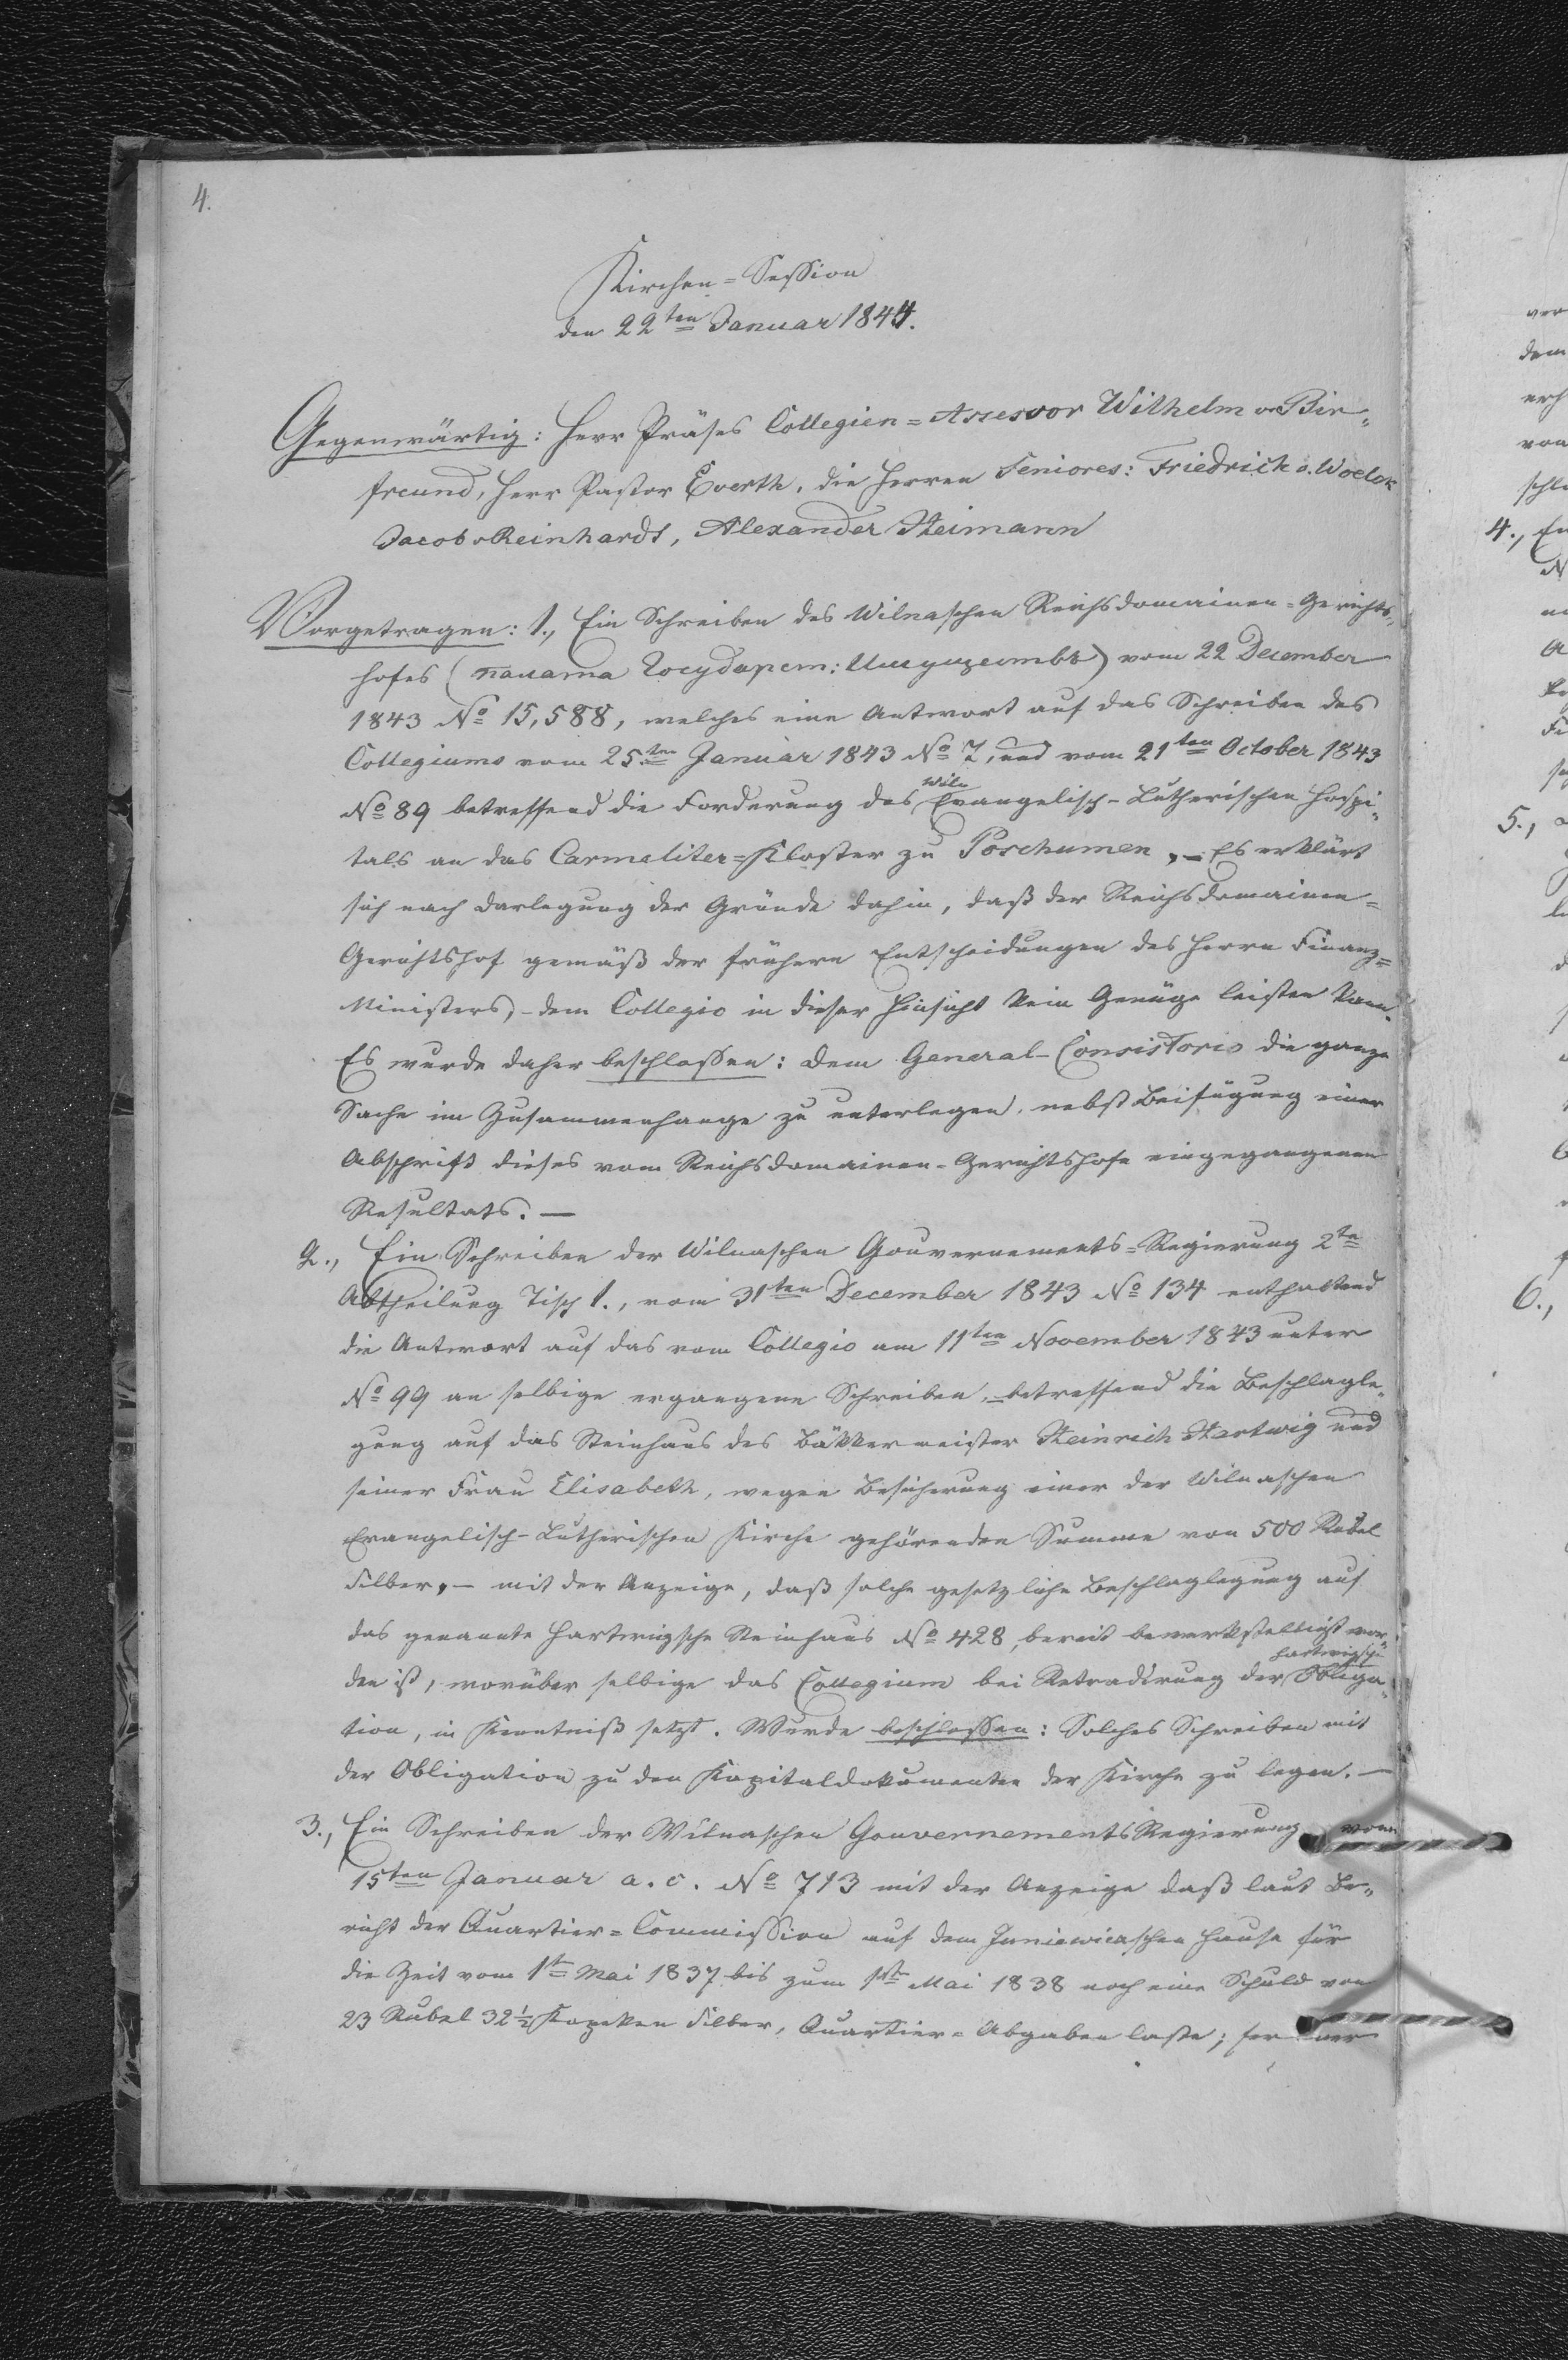 4.
Kirchen=Session
den 22ten Januar 1844.
Gegenwärtig: Herr Präses Collegien=Assessor Wilhelm v Bir„
freund, Herr Pastor Everth, die Herren Seniores: Friedrich v. Woelck
Jacob v Reinhardt, Alexander Heimann
Vorgetragen: 1., Ein Schreiben des Wilnaschen Reichsdomainen-Gerichts„
hofes (палата Государст: Имуществъ) vom 22 December
1843 No 15,588, welches eine Antwort auf das Schreiben des
Collegiums vom 25.ten Januar 1843 No 7, und vom 21ten October 1843
Wiln
No 89 betreffend die Forderung des Evangelisch-Lutherischen Hospi„
tals an das Carmeliter=Kloster zu Poschumen, – Es erklärt
sich nach Darlegung der Gründe dahin, daß der Reichsdomainen=
Gerichtshof gemäß der frühern Entscheidungen des Herrn Finanz=
Ministers, – dem Collegio in dieser Hinsicht kein Genüge leisten kann.
Es wurde daher beschlossen: dem General-Consistorio die ganze
Sache im Zusammenhange zu unterlegen, nebst Beifügung einer
Abschrift dieses vom Reichsdomainen-Gerichtshofe eingegangenen
Resultats. —
2., Ein Schreiben der Wilnaschen Gouvernements=Regierung 2te
Abtheilung Tisch 1., vom 31ten December 1843 No 134 enthaltend
die Antwort auf das vom Collegio am 11ten November 1843 unter
No 99 an selbige ergangene Schreiben, – betreffend die Beschlagle„
gung auf das Steinhaus des Bäkkermeister Heinrich Hartwig und
seiner Frau Elisabeth, wegen Besicherung einer der Wilnaschen
Evangelisch-Lutherischen Kirche gehörenden Summe von 500 Rubel
Silber, – mit der Anzeige, daß solche gesetzliche Beschlaglegung auf
das genannte Hartwigsche Steinhaus No 428, bereit bewerkstelligt wor„
Hartwigsche
den ist, worüber selbige das Collegium bei Retradirung der Obliga„
tion, in Kenntniß setzt. Wurde beschlossen: Solches Schreiben mit
der Obligation zu den Kapitaldokumenten der Kirche zu legen. —
3., Ein Schreiben der Wilnaschen GouvernementsRegierung vom
15ten Januar a. c. No 713 mit der Anzeige daß laut Be„
richt der Quartier=Commission auf dem Juniewiczschen Hause für
die Zeit vom 1ten Mai 1837 bis zum 1ten Mai 1838 noch eine Schuld von
23 Rubel 32½ Kopeken Silber, Quartier=Abgaben laste; ferner
ver
dem
erh
von
schl
4., Ei
5.,
6.,